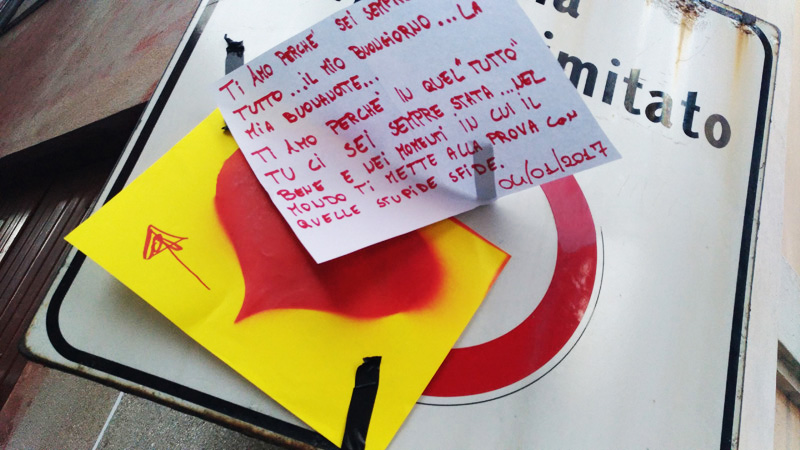 TI AMO PERCHE' SEI SEMPRE
TUTTO...IL MIO BUONGIORNO...LA
MIA BUONANOTTE...
TI AMO PERCHÈ IN QUEL "TUTTO"
TU CI SEI SEMPRE STATA...NEL
BENE E NEI MOMENTI IN CUI IL
MONDO TI METTE ALLA PROVA CON
QUELLE STUPIDE SFIDE.
04/01/2017
limitato